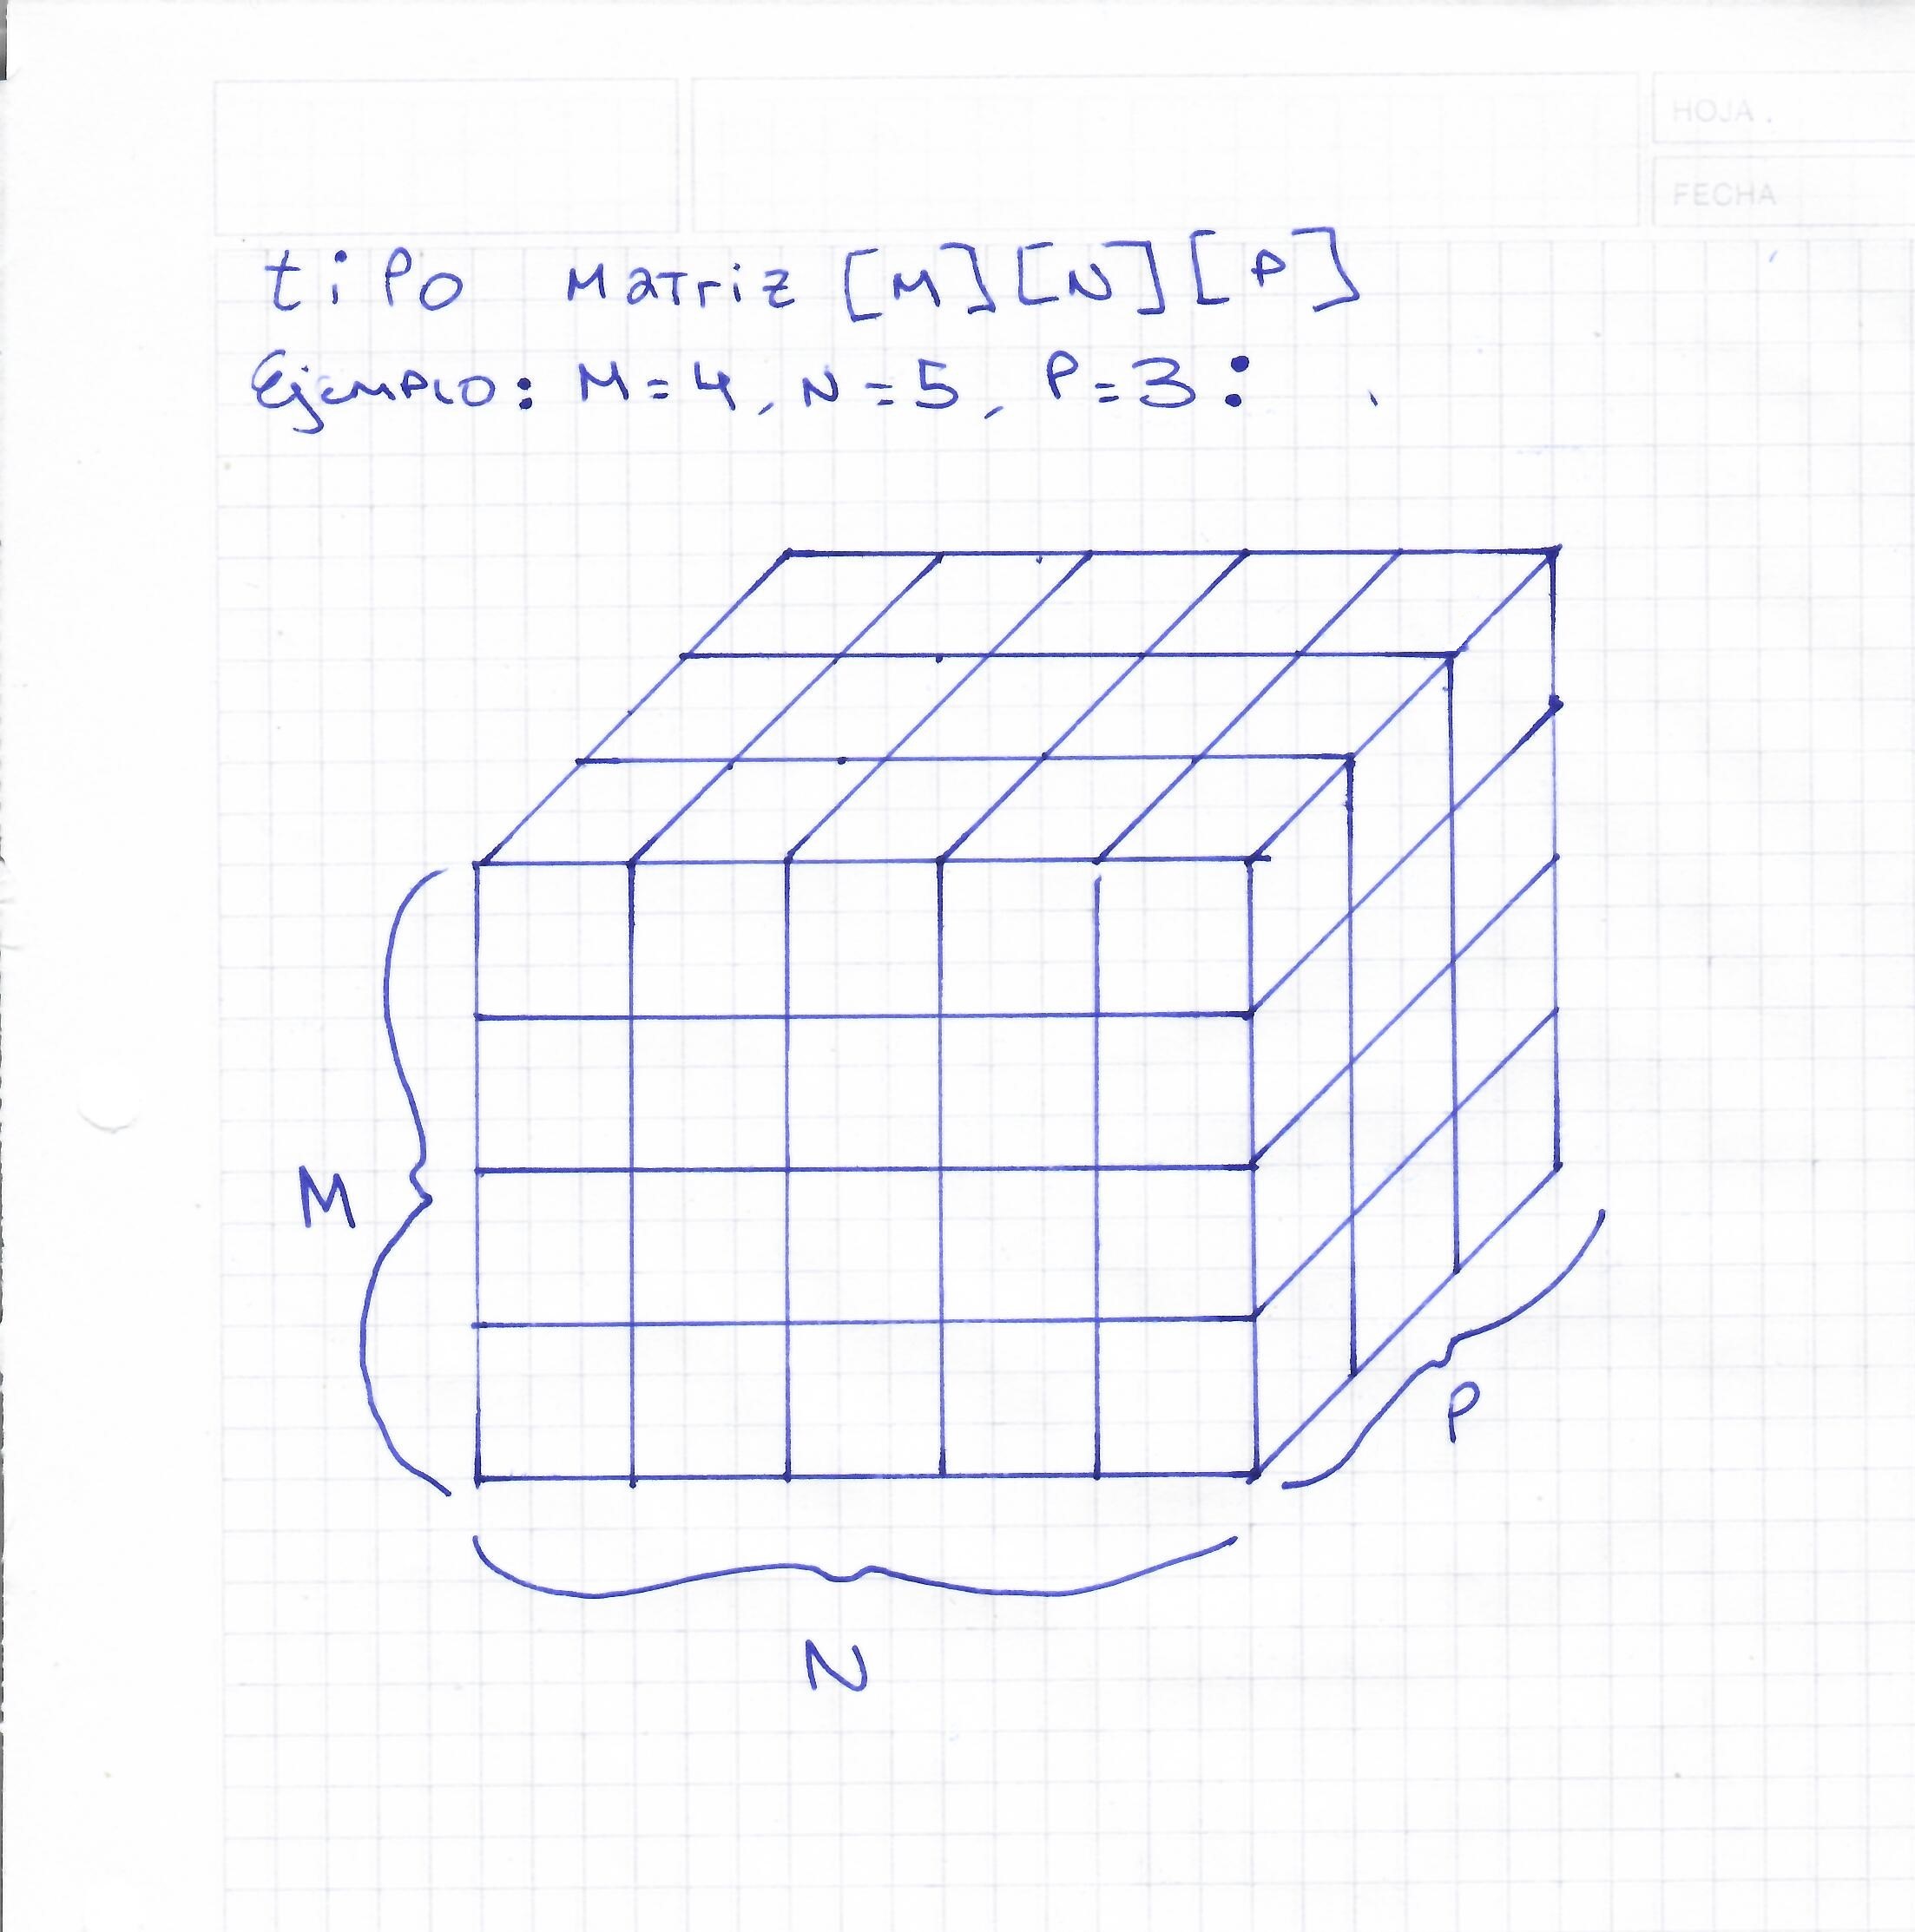 HOJA.
FECHA
tipo Matriz [M][N][P]
Ejemplo: M=4, N=5, P=3:
M
P
N